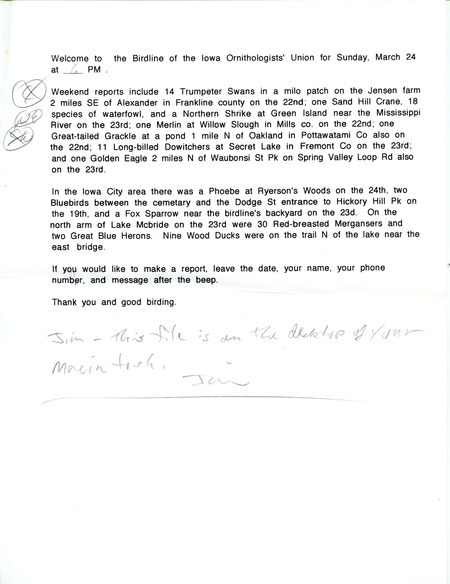 Welcome to the Birdline of the Iowa Ornithologists' Union for Sunday, March 24
at 6 PM .
Weekend reports include 14 Trumpeter Swans in a milo patch on the Jensen farm
2 miles SE of Alexander in Frankline county on the 22nd; one Sand Hill Crane, 18
species of waterfowl, and a Northern Shrike at Green Island near the Mississippi
River on the 23rd; one Merlin at Willow Slough in Mills co. on the 22nd; one
Great-tailed Grackle at a pond 1 mile N of Oakland in Pottawatami Co also on
the 22nd; 11 Long-billed Dowitchers at Secret Lake in Fremont Co on the 23rd;
and one Golden Eagle 2 miles N of Waubonsi St Pk on Spring Valley Loop Rd also
on the 23rd.
In the Iowa City area there was a Phoebe at Ryerson's Woods on the 24th, two
Bluebirds between the cemetary and the Dodge St entrance to Hickory Hill Pk on
the 19th, and a Fox Sparrow near the birdline's backyard on the 23d. On the
north arm of Lake Mcbride on the 23rd were 30 Red-breasted Mergansers and
two Great Blue Herons. Nine Wood Ducks were on the trail N of the lake near the
east bridge.
If you would like to make a report, leave the date, your name, your phone
number, and message after the beep.
Thank you and good birding.
Jim - this file is on the desktop of your
Macintosh.
Jim